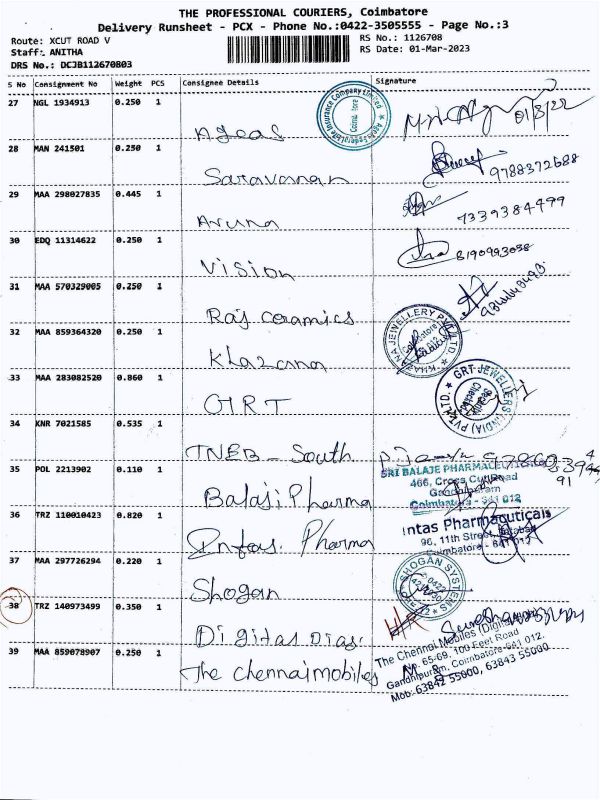 THE PROFESSIONAL COURIERS, Coimbatore
Delivery Runsheet - PCX - Phone No.:0422-3505555 - Page No.:3
Route: XCUT ROAD V
RS No.: 1126708
Staff: ANITHA
RS Date: 01-Mar-2023
DRS No.: DCJB112670803
S No Consignment No Weight PCS Consignee Details Signature
27 NGL 1934913 0.250 1
Ageas
28 MAN 241501 0.250 1
Saravanan 9788372688
29 MAA 298027835 0.445 1
Aruna 7339384499
30 EDQ 11314622 0.250 1
Vision 8190993038
31 MAA 570329005 0.250 1
Raj ceramics
32 MAA 859364320 0.250 1
Khazana
KHAZANA JEWELLERY PVT. LTD.
33 MAA 283082520 0.860 1
GRT
GRT JEWELLERS (INDIA) (PVT.) LTD.
34 KNR 7021585 0.535 1
TNEB - South
35 POL 2213902 0.110 1
Balaji Pharma
SRI BALAJE PHARMACEUTICALS
466, Cross Cut Road
Gandhipuram
Coimbatore - 641 012
36 TRZ 110010423 0.820 1
Intas. Pharma
Intas Pharmaceuticals
90, 11th Street,
Coimbatore - 641 012
37 MAA 297726294 0.220 1
Shogan
SHOGAN SYSTEMS
38 TRZ 140973499 0.350 1
Digitas Dias.
39 MAA 859078907 0.250 1
The chennai mobiles
The Chennai Mobiles
No. 65-69, 100 Feet Road
Gandhipuram, Coimbatore-641 012.
Mob: 63842 55000, 63843 55000